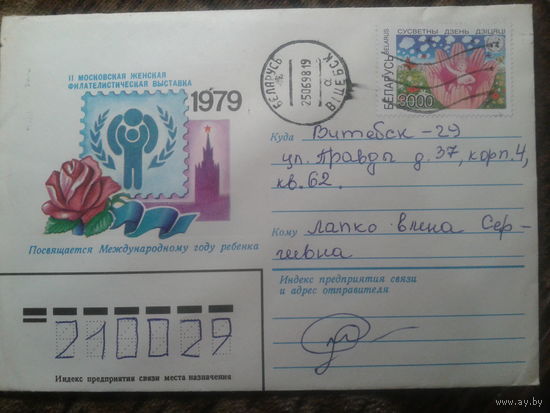 СУСВЕТНЫ ДЗЕНЬ ДЗІЦЯЦІ
БЕЛАРУСЬ
BELARUS
3000
БЕЛАРУСЬ
ВІЦЕБСК
25069819
II МОСКОВСКАЯ ЖЕНСКАЯ
ФИЛАТЕЛИСТИЧЕСКАЯ ВЫСТАВКА
1979
Посвящается Международному году ребенка
Куда Витебск-29
ул. Правды д. 37, корп. 4,
кв. 62.
Кому Лапко Елена Сер-
геевна
Индекс предприятия связи
и адрес отправителя
210029
Индекс предприятия связи места назначения
www.ay.by